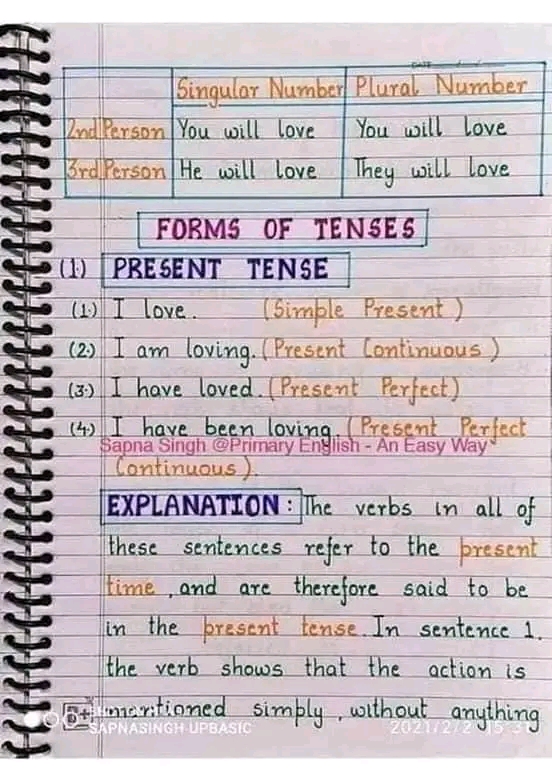 DATE
Singular Number Plural Number
2nd Person You will love You will love
3rd Person He will love They will love
FORMS OF TENSES
(1) PRESENT TENSE
(1.) I love. (Simple Present)
(2.) I am loving. (Present Continuous)
(3.) I have loved. (Present Perfect)
(4.) I have been loving. (Present Perfect
Sapna Singh @Primary English - An Easy Way
Continuous).
EXPLANATION: The verbs in all of
these sentences refer to the present
time, and are therefore said to be
in the present tense. In sentence 1.
the verb shows that the action is
mentioned simply, without anything
SAPNASINGH UPBASIC